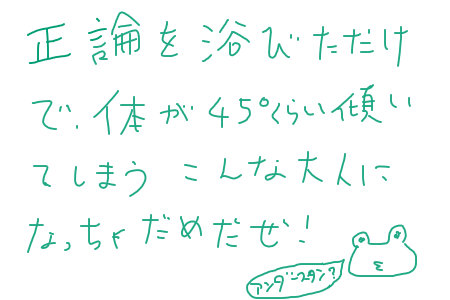 正論を浴びただけ
で、体が45°くらい傾い
てしまう こんな大人に
なっちゃだめだぜ!
アンダースタン?